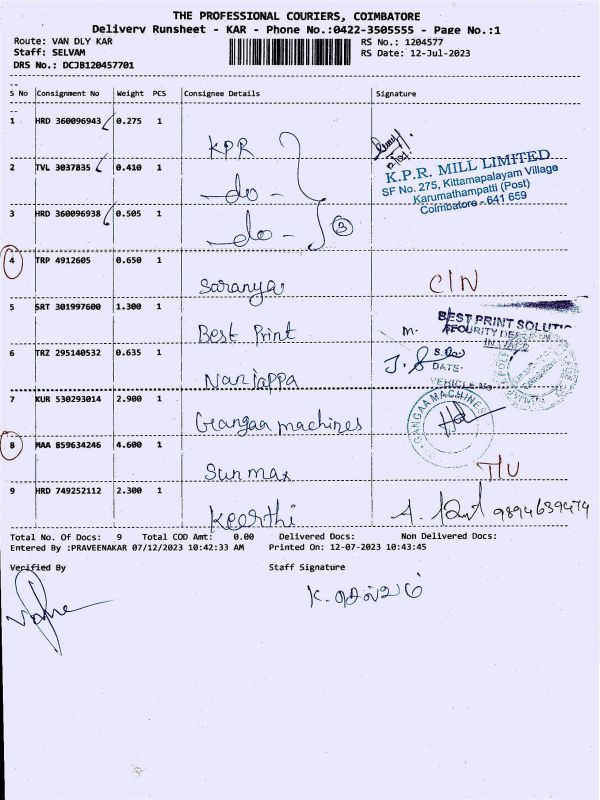 THE PROFESSIONAL COURIERS, COIMBATORE
Delivery Runsheet - KAR - Phone No.:0422-3505555 - Page No.:1
Route: VAN DLY KAR RS No.: 1204577
Staff: SELVAM RS Date: 12-Jul-2023
DRS No.: DCJB120457701
S No Consignment No Weight PCS Consignee Details Signature
1 HRD 360096943 0.275 1 KPR
2 TVL 3037835 0.410 1 do -
3 HRD 360096938 0.505 1 do - 3
K.P.R. MILL LIMITED
SF No. 275, Kittamapalayam Village
Karumathampatti (Post)
Coimbatore - 641 659
4 TRP 4912605 0.650 1 Saranya C/N
5 SRT 301997600 1.300 1 Best Print
BEST PRINT SOLUTI
6 TRZ 295140532 0.635 1 Nanjappa
DATE
VEHICLE No
7 KUR 530293014 2.900 1 Gangaa machines
GANGAA MACHINES
8 MAA 859634246 4.600 1 Sun max
9 HRD 749252112 2.300 1 Keerthi 9894639474
Total No. Of Docs: 9 Total COD Amt: 0.00 Delivered Docs: Non Delivered Docs:
Entered By :PRAVEENAKAR 07/12/2023 10:42:33 AM Printed On: 12-07-2023 10:43:45
Verified By Staff Signature